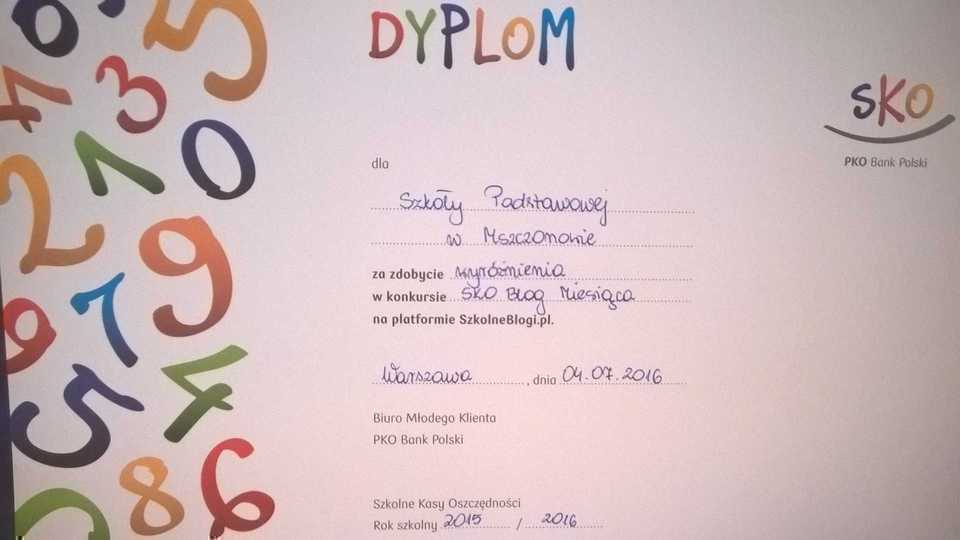 DYPLOM
SKO
PKO Bank Polski
dla
Szkoły Podstawowej
w Mszczonowie
za zdobycie wyróżnienia
w konkursie SKO Blog Miesiąca
na platformie SzkolneBlogi.pl.
Warszawa, dnia 04.07.2016
Biuro Młodego Klienta
PKO Bank Polski
Szkolne Kasy Oszczędności
Rok szkolny 2015 / 2016